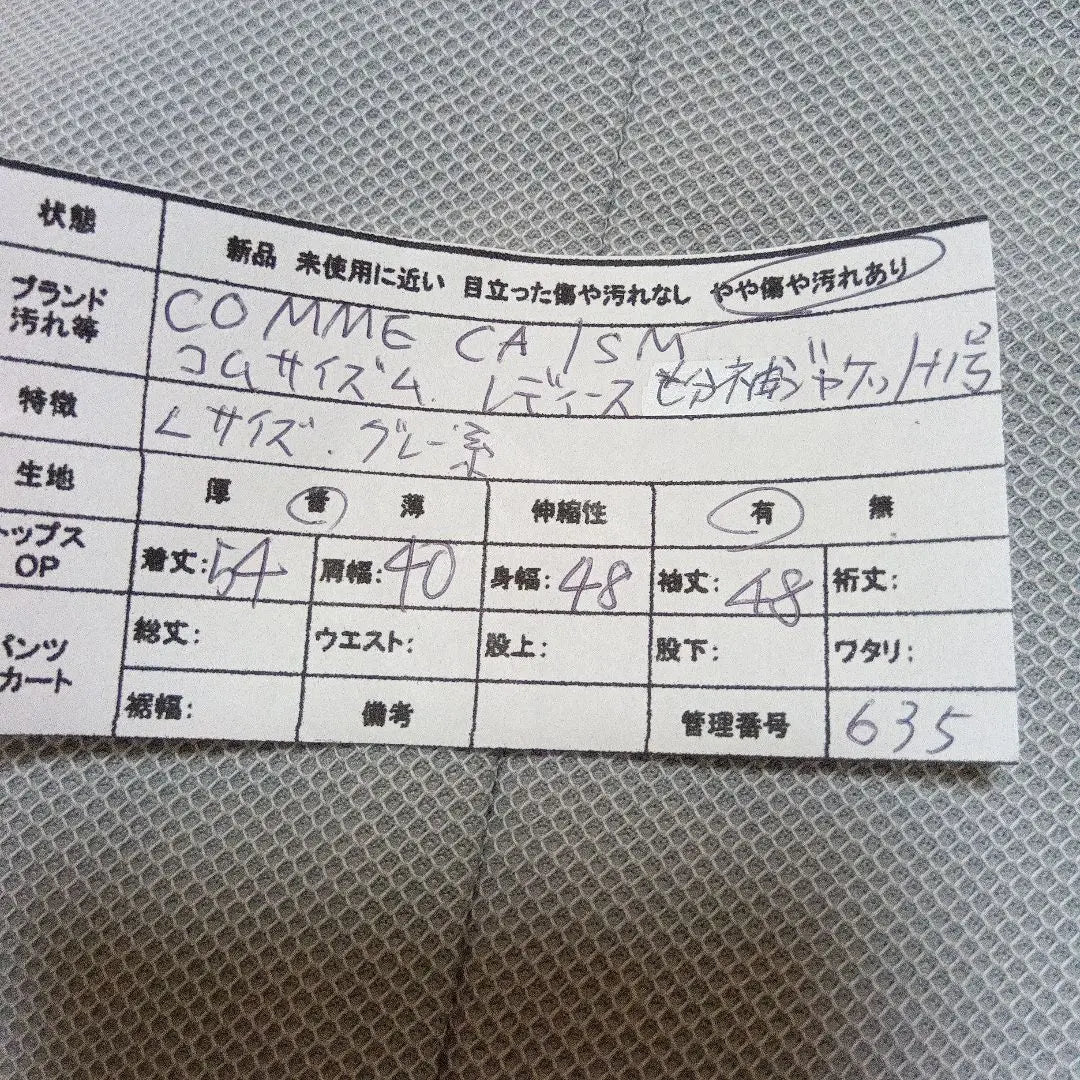 状態 新品 未使用に近い 目立った傷や汚れなし やや傷や汚れあり
ブランド COMME CA ISM
汚れ等 コムサイズム. レディース 七分袖ジャケット 11号
特徴 Lサイズ. グレー系
生地 厚 普 薄 伸縮性 有 無
トップス
OP 着丈:54 肩幅:40 身幅:48 袖丈:48 裄丈:
パンツ 総丈: ウエスト: 股上: 股下: ワタリ:
カート
裾幅: 備考 管理番号 635